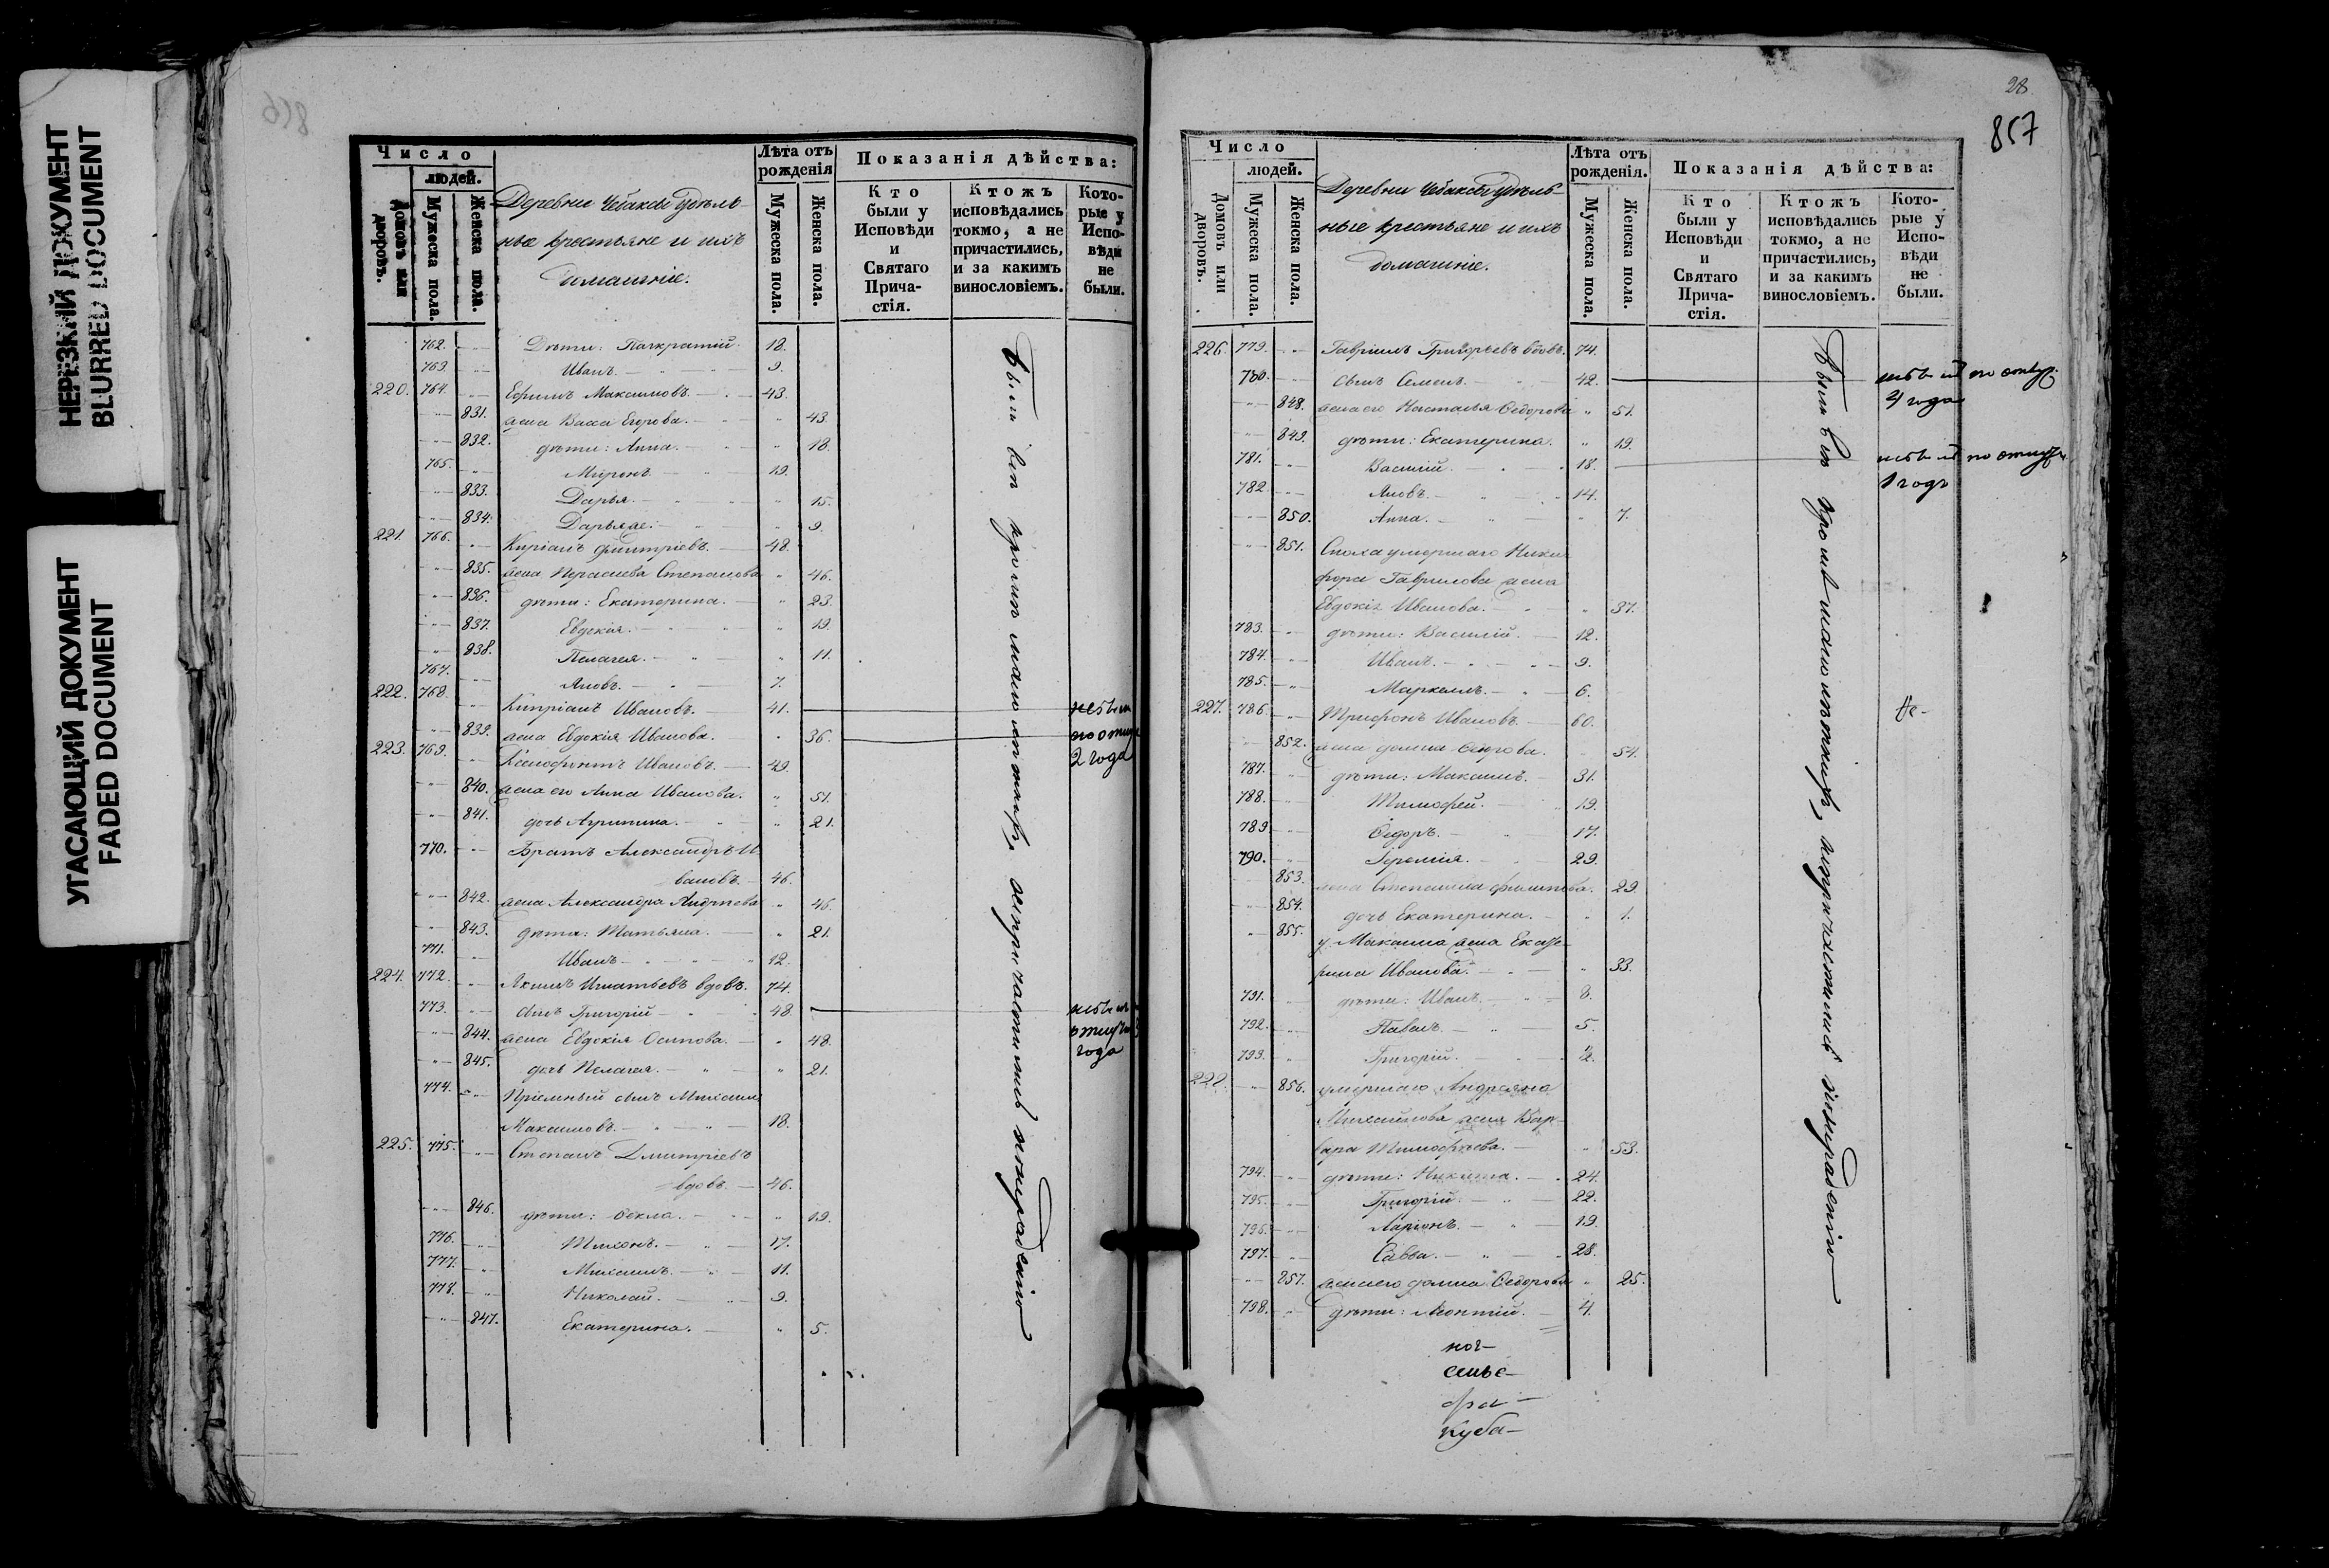 НЕРЕЗКИЙ ДОКУМЕНТ
BLURRED DOCUMENT
УГАСАЮЩИЙ ДОКУМЕНТ
FADED DOCUMENT
856
Число
людей.
Домовъ или дворовъ.
Мужеска пола.
Женска пола.
Деревни Чебаксы удѣль-
ные крестьяне и ихъ
домашніе.
Лѣта отъ рожденія
Мужеска пола.
Женска пола.
Показанія дѣйства:
Кто были у Исповѣди и Святаго Прича-стія.
Ктожъ исповѣдались токмо, а не причастились, и за какимъ винословіемъ.
Кото-рые у Испо-вѣди не были.
762. Дѣти: Панкратій. 18.
763. Иванъ. 9.
220. 764. Ефимъ Максимовъ. 43.
831. жена Васса Егорова. 43.
832. дѣти: Анна. 18.
765. Миронъ. 19.
833. Дарья. 15.
834. Дарья же. 9.
221. 766. Кипріанъ Дмитріевъ. 48.
835. жена Параскева Степанова 46.
836. дѣти: Екатерина. 23.
837. Евдокія. 19.
838. Пелагея. 11.
767. Яковъ. 7.
222. 768. Кипріанъ Ивановъ. 41.
839. жена Евдокія Иванова. 36.
2 года
223. 769. Ксенофонтъ Ивановъ. 49.
840. жена его Анна Иванова. 51.
841. дочь Агрипина. 21.
770. Братъ Александръ И-
вановъ. 46.
842. жена Александра Андреева 46.
843. дѣти: Татьяна. 21.
771. Иванъ 12.
224. 772. Акимъ Игнатьевъ вдовъ. 74.
773. сынъ Григорій 48.
844. жена Евдокія Осипова. 48.
года
845. дочь Пелагея. 21.
774. Пріемный сынъ Михаилъ
Максимовъ. 18.
225. 775. Степанъ Дмитріевъ
вдовъ. 46.
846. дѣти: Ѳекла. 19.
776. Тихонъ. 17.
777. Михаилъ. 11.
778. Николай. 9.
847. Екатерина. 5.
28
857
Число
людей.
Домовъ или дворовъ.
Мужеска пола.
Женска пола.
Деревни Чебаксы удѣль-
ные крестьяне и ихъ
домашніе.
Лѣта отъ рожденія.
Мужеска пола.
Женска пола.
Показанія дѣйства:
Кто были у Исповѣди и Святаго Прича-стія.
Ктожъ исповѣдались токмо, а не причастились, и за какимъ винословіемъ.
Кото-рые у Испо-вѣди не были.
226. 779. Гавріилъ Григорьевъ вдовъ. 74.
780. сынъ Семенъ. 42.
4 года
848. жена его Настасья Ѳедорова 51.
849. дѣти: Екатерина. 19.
781. Василій. 18.
1 годъ
782. Яковъ. 14.
850. Анна. 7.
851. Сноха умершаго Ники-
фора Гаврилова жена
Евдокія Иванова. 37.
783. дѣти: Василій. 12.
784. Иванъ. 9.
785. Маркеллъ. 6.
227. 786. Трифонъ Ивановъ 60.
852. жена Домна Ѳедорова. 54.
787. дѣти: Максимъ. 31.
788. Тимофей. 19.
789. Ѳедоръ. 17.
790. Іеремія. 29.
853. жена Степанида Филипова. 29.
854. дочь Екатерина. 1.
855. у Максима жена Екате-
рина Иванова. 33.
791. дѣти: Иванъ. 8.
792. Павелъ. 5.
793. Григорій. 2.
228. 856. умершаго Андреяна
Михайлова жена Вар-
вара Тимофѣева. 53.
794. дѣти: Никита. 24.
795. Григорій. 22.
796. Ларіонъ. 19.
797. Савва. 28.
857. жена его Домна Ѳедорова 25.
798. дѣти: Леонтій. 4.